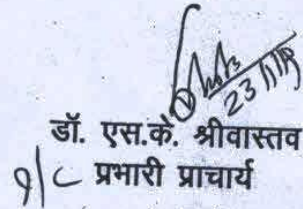 23/11/19
डॉ. एस.के. श्रीवास्तव
I/C प्रभारी प्राचार्य